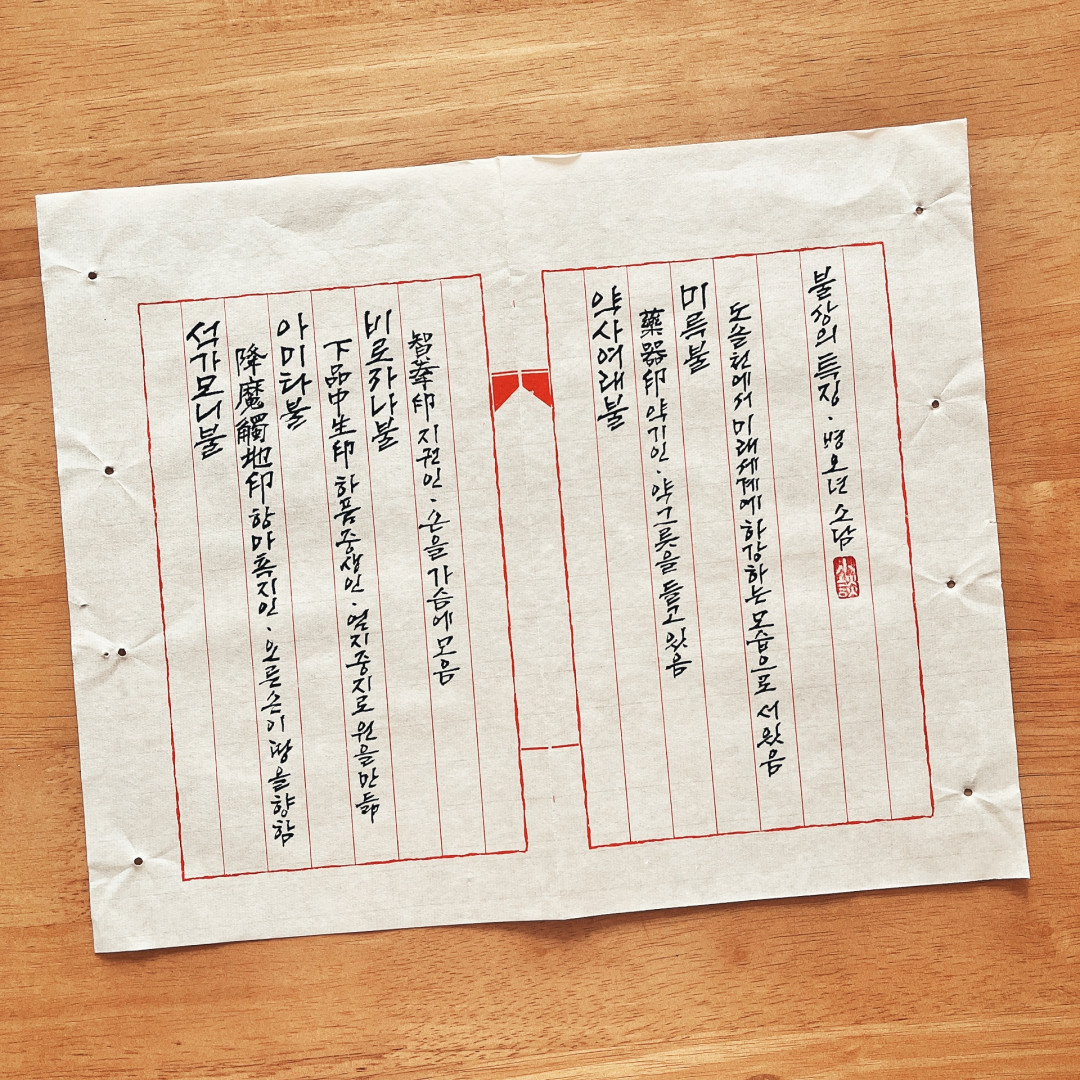 석가모니불
降魔觸地印 항마촉지인 · 오른손이 땅을 향함
아미타불
下品中生印 하품중생인 · 엄지중지로 원을 만듦
비로자나불
智拳印 지권인 · 손을 가슴에 모음
약사여래불
藥器印 약기인 · 약그릇을 들고 있음
미륵불
도솔천에서 미래세계에 하강하는 모습으로 서 있음
불상의 특징 · 병오년 소담